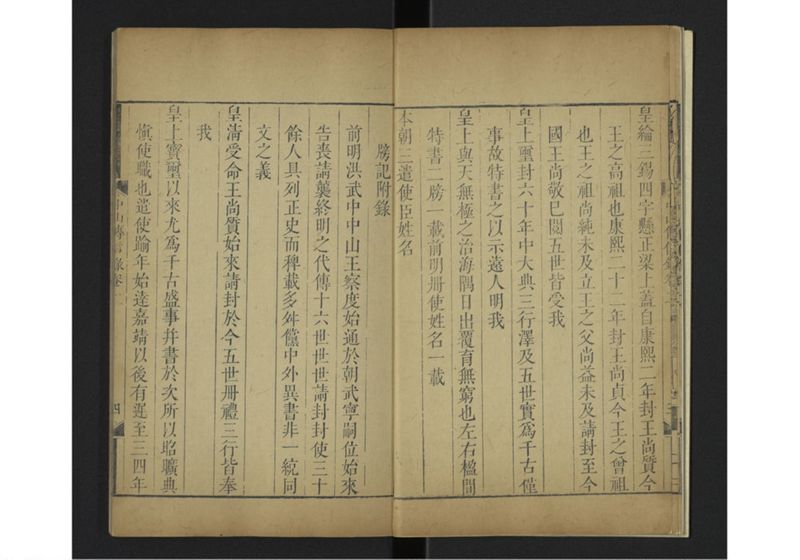 皇綸三錫四字懸正梁上蓋自康熙二年封王尚質今
王之高祖也康熙二十二年封王尚貞今王之曾祖
也王之祖尚純未及立王之父尚益未及請封至今
國王尚敬已閱五世皆受我
皇上璽封六十年中大典三行澤及五世實爲千古僅
事故特書之以示遠人明我
皇上與天無極之治海隅日出覆育無窮也左右楹間
特書二牓一載前明冊使姓名一載
本朝三遣使臣姓名
牓記附錄
前明洪武中中山王察度始通於朝武寧嗣位始來
告喪請襲終明之代傳十六世世世請封封使三十
餘人具列正史而稗載多舛儻中外異書非一統同
文之義
皇清受命王尚質始來請封於今五世冊禮三行皆奉
我
皇上寶璽以來尤爲千古盛事幷書於次所以昭曠典
愼使職也遣使踰年始達嘉靖以後有遲至三四年
中山傳信錄卷二
四